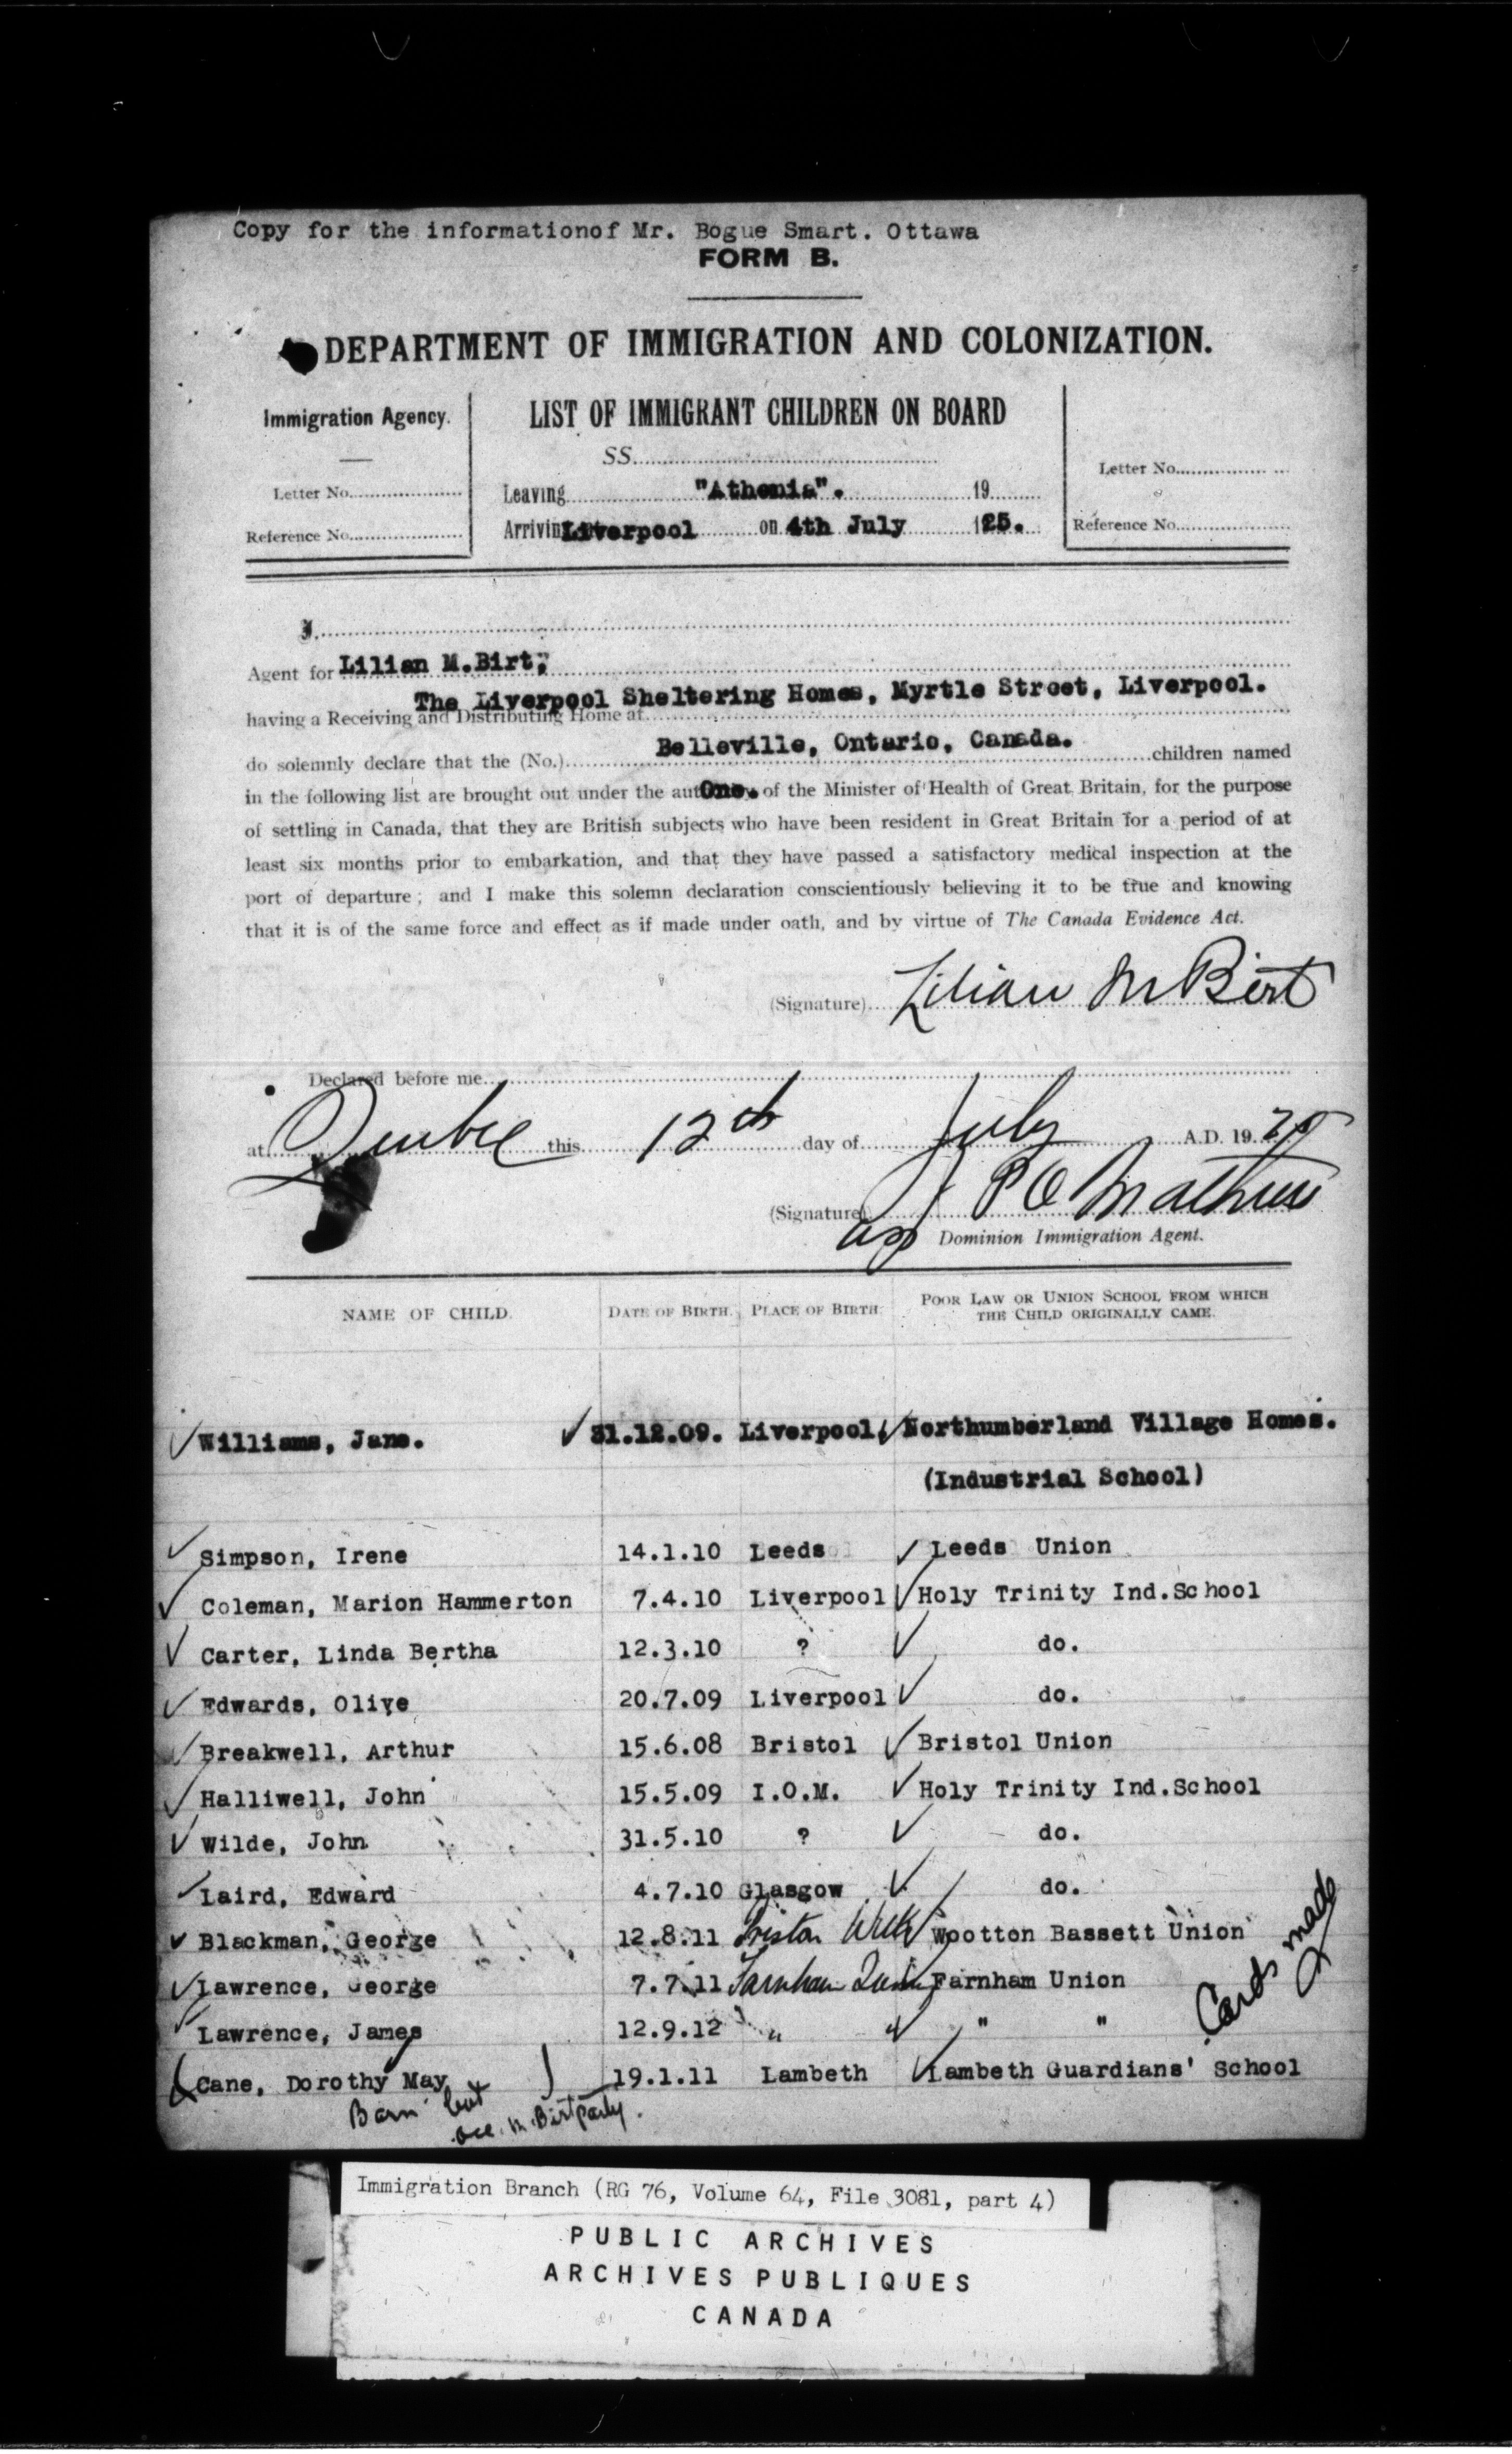 Copy for the informationof Mr. Bogue Smart. Ottawa
FORM B.
DEPARTMENT OF IMMIGRATION AND COLONIZATION.
Immigration Agency.
Letter No.
Reference No.
LIST OF IMMIGRANT CHILDREN ON BOARD
SS.
Leaving "Athenia". 19
Arrivin Liverpool on 4th July 125.
Letter No.
Reference No.
I.
Agent for Lilian M.Birt,
The Liverpool Sheltering Homes, Myrtle Street, Liverpool.
having a Receiving and Distributing Home at
Belleville, Ontario, Canada.
do solemnly declare that the (No.) children named
in the following list are brought out under the aut One. of the Minister of Health of Great Britain, for the purpose
of settling in Canada, that they are British subjects who have been resident in Great Britain for a period of at
least six months prior to embarkation, and that they have passed a satisfactory medical inspection at the
port of departure; and I make this solemn declaration conscientiously believing it to be true and knowing
that it is of the same force and effect as if made under oath, and by virtue of The Canada Evidence Act.
(Signature) Lilian M Birt
Declared before me
at Quebec this 12th day of July A.D. 19 25
(Signature)
Dominion Immigration Agent.
NAME OF CHILD. DATE OF BIRTH. PLACE OF BIRTH. POOR LAW OR UNION SCHOOL FROM WHICH THE CHILD ORIGINALLY CAME.
Williams, Jane. 31.12.09. Liverpool Northumberland Village Homes.
(Industrial School)
Simpson, Irene 14.1.10 Leeds Leeds Union
Coleman, Marion Hammerton 7.4.10 Liverpool Holy Trinity Ind.School
Carter, Linda Bertha 12.3.10 ? do.
Edwards, Olive 20.7.09 Liverpool do.
Breakwell, Arthur 15.6.08 Bristol Bristol Union
Halliwell, John 15.5.09 I.O.M. Holy Trinity Ind.School
Wilde, John 31.5.10 ? do.
Laird, Edward 4.7.10 Glasgow do.
Blackman, George 12.8.11 Wootton Bassett Union
Lawrence, George 7.7.11 Farnham Farnham Union
Lawrence, James 12.9.12 " " "
Cane, Dorothy May 19.1.11 Lambeth Lambeth Guardians' School
Cards made
Barn but
in Birt party.
Immigration Branch (RG 76, Volume 64, File 3081, part 4)
PUBLIC ARCHIVES
ARCHIVES PUBLIQUES
CANADA